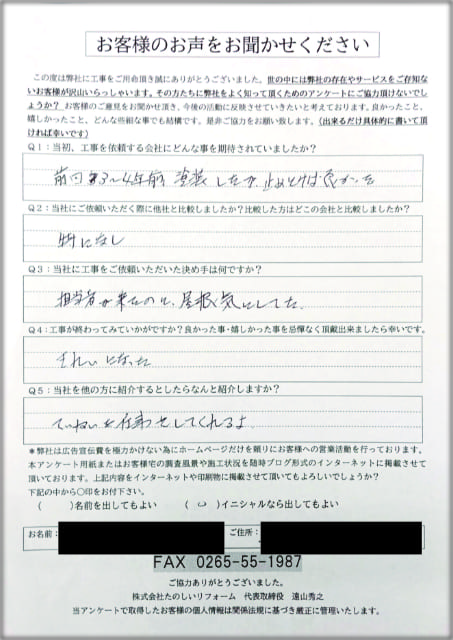 お客様のお声をお聞かせください
この度は弊社に工事をご用命頂き誠にありがとうございました。世の中には弊社の存在やサービスをご存知な
いお客様が沢山いらっしゃいます。その方たちに弊社をよく知って頂くためのアンケートにご協力頂けないでし
ょうか？ お客様のご意見をお聞かせ頂き、今後の活動に反映させていきたいと考えております。良かったこと、
嬉しかったこと、どんな些細な事でも結構です。是非ご協力をお願い致します。（出来るだけ具体的に書いて頂
ければ幸いです）
Q１：当初、工事を依頼する会社にどんな事を期待されていましたか？
前回 3〜4年前 塗装したが 止めとけば良かった
Q２：当社にご依頼いただく際に他社と比較しましたか？比較した方はどこの会社と比較しましたか？
特になし
Q３：当社に工事をご依頼いただいた決め手は何ですか？
担当者が来たので、屋根気にしてた。
Q４：工事が終わってみていかがですか？良かった事・嬉しかった事を忌憚なく頂戴出来ましたら幸いです。
きれいになった
Q５：当社を他の方に紹介するとしたらなんと紹介しますか？
ていねいな仕事をしてくれるよ。
＊弊社は広告宣伝費を極力かけない為にホームページだけを頼りにお客様への営業活動を行っております。
本アンケート用紙またはお客様宅の調査風景や施工状況を随時ブログ形式のインターネットに掲載させて
頂いております。上記内容をインターネットや印刷物に掲載させて頂いてもよろしいでしょうか？
下記の中から〇印をお付下さい。
（　　　）名前を出してもよい　　（ 〇 ）イニシャルなら出してもよい
お名前：　　　ご住所：
FAX 0265-55-1987
ご協力ありがとうございました。
株式会社たのしいリフォーム　代表取締役　遠山秀之
当アンケートで取得したお客様の個人情報は関係法規に基づき厳正に管理いたします。